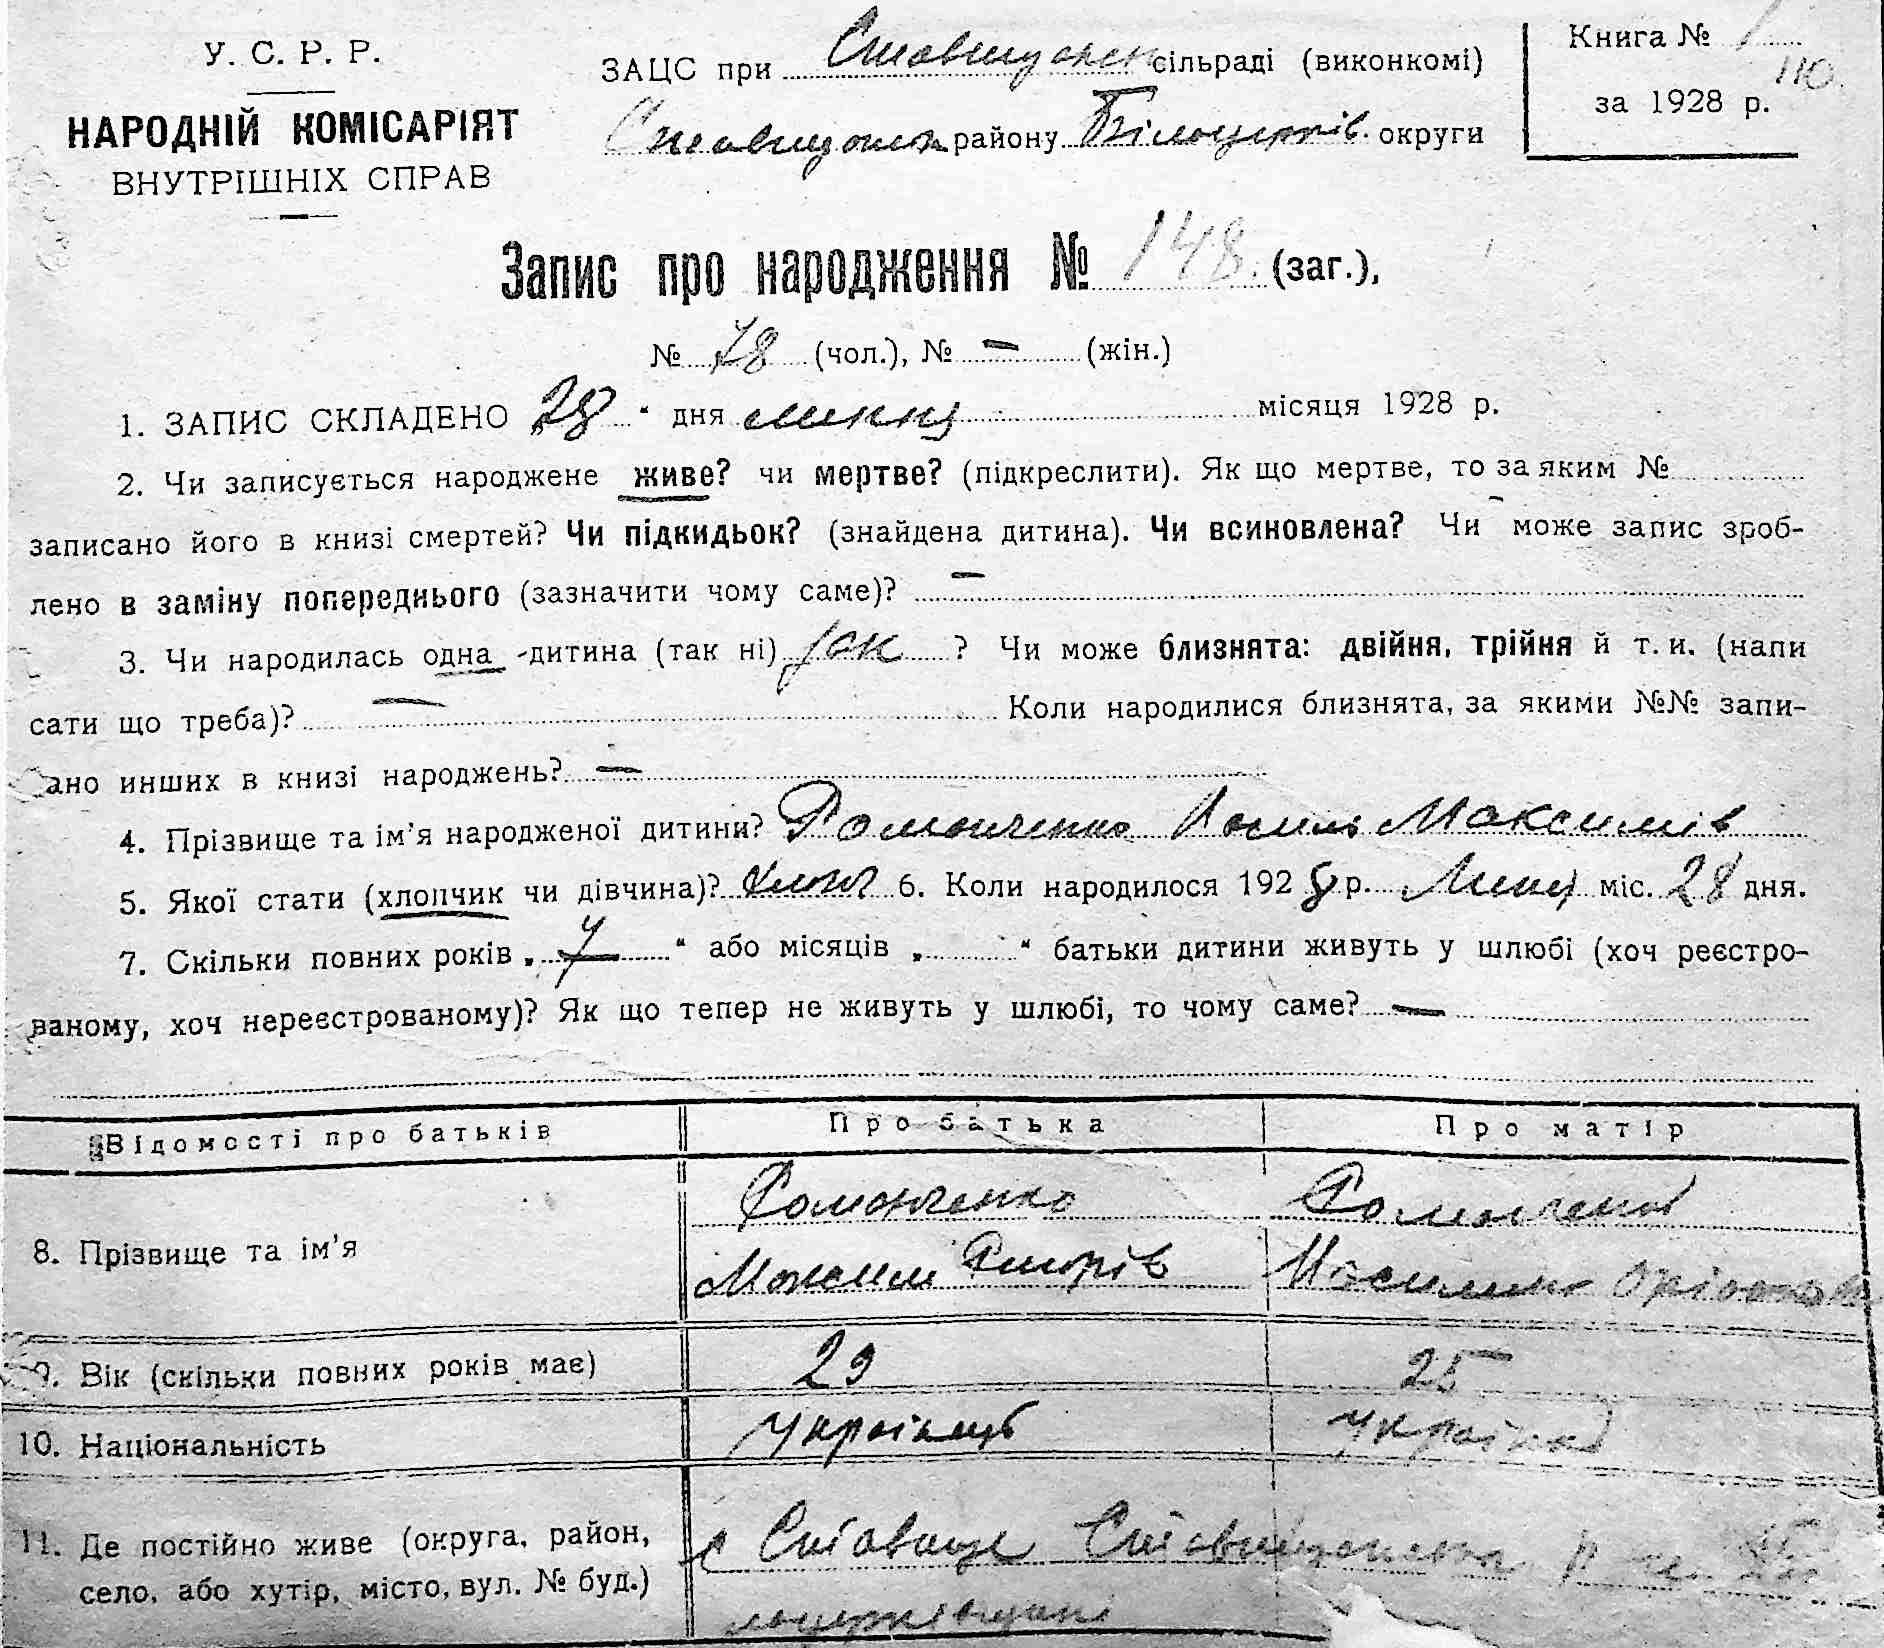 У. С. Р. Р.
НАРОДНІЙ КОМІСАРІЯТ
ВНУТРІШНІХ СПРАВ
ЗАЦС при Ставищанск сільраді (виконкомі)
Ставищанськ району Білоцерків. округи
Книга № 1
110.
за 1928 р.
Запис про народження № 148. (заг.),
№ 78 (чол.), № — (жін.)
1. ЗАПИС СКЛАДЕНО 28 “ дня липня місяця 1928 р.
2. Чи записується народжене живе? чи мертве? (підкреслити). Як що мертве, то за яким №
записано його в книзі смертей? Чи підкидьок? (знайдена дитина). Чи всиновлена? Чи може запис зроб-
лено в заміну попереднього (зазначити чому саме)? —
3. Чи народилась одна -дитина (так ні) так ? Чи може близнята: двійня, трійня й т. и. (напи
сати що треба)? — Коли народилися близнята, за якими №№ запи-
ано инших в книзі народжень? —
4. Прізвище та ім'я народженої дитини? Романченко Максимів
5. Якої стати (хлопчик чи дівчина)? хлопч 6. Коли народилося 1928 р. Липня міс. 28 дня.
7. Скільки повних років „ 7 “ або місяців „ “ батьки дитини живуть у шлюбі (хоч реєстро-
ваному, хоч нереєстрованому)? Як що тепер не живуть у шлюбі, то чому саме? —
Відомості про батьків Про батька Про матір
Романченко Романченко
8. Прізвище та ім'я Максим
9. Вік (скільки повних років має) 29 25
10. Національність Українець Українка
11. Де постійно живе (округа, район, с Ставище Ставищанськ
село, або хутір, місто, вул. № буд.)